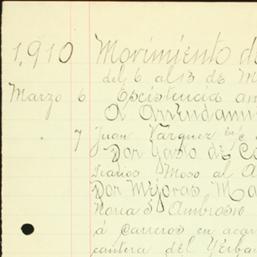 1,910 Movimiento de
del 6 al 13 de M
Marzo 6 Existencia an
A Arrendami
" 7 Juan Vazquez
Por Gasto de Ca
Por Mejoras. Ma
Noria S. Ambrosio
á Carreros en acar
cantera del Yerba